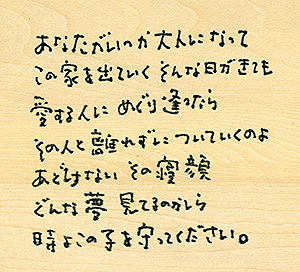 あなたがいつか大人になって
この家を出ていくそんな日がきても
愛する人にめぐり逢ったなら
その人と離れずについていくのよ
あどけないその寝顔
どんな夢見てるのかしら
時よこの子を守ってください。